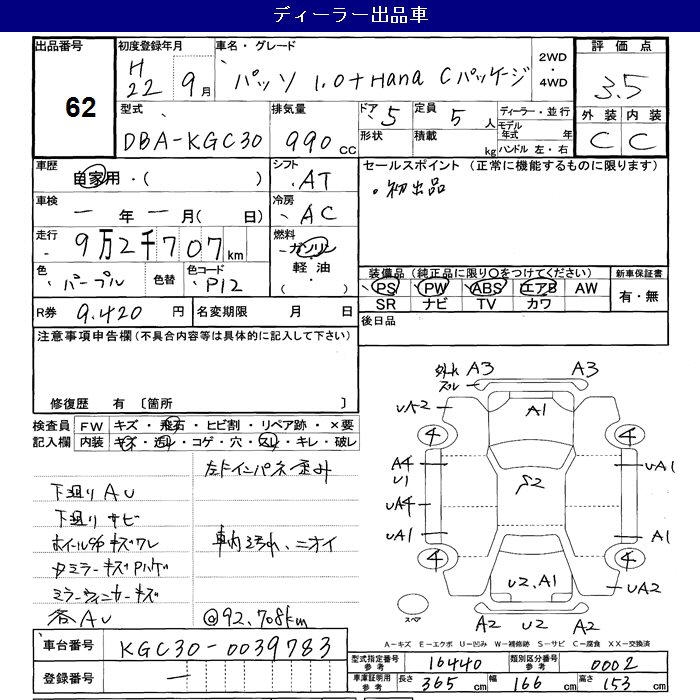 ディーラー出品車
出品番号 初度登録年月 車名・グレード 2WD・4WD 評価点
62
H22 9月 パッソ 1.0+Hana Cパッケージ 3.5
型式 排気量 ドア 5 定員 5人 ディーラー・並行 外装 内装
DBA-KGC30 990cc 形状 積載 kg モデル年式 年 ハンドル 左・右 C C
車歴 シフト セールスポイント (正常に機能するものに限ります)
自家用・( ) AT 初出品
車検 冷房
一年一月( 日) AC
走行 燃料
9万2千707km ガソリン・軽油・( )
色 色替 色コード 装備品 (純正品に限り○をつけてください) 新車保証書
パープル P12 PS PW ABS エアB AW 有・無
SR ナビ TV カワ
R券 9.420円 名変期限 月 日 後日品
注意事項申告欄(不具合内容等は具体的に記入して下さい)
修復歴 有 〔箇所 〕
検査員 FW キズ・飛石・ヒビ割・リペア跡・×要
記入欄 内装 キズ・汚レ・コゲ・穴・スレ・キレ・破レ
下廻り AU
下廻り サビ
ミラーウィンカーキズ
各AU @92.708km
車内汚れ、ニオイ
A3 A3
UA2 A1
4 4
A4 U1 UA1
S2
UA4
UA1 A1
4 4
U2.A1 UA2
スペア A2 U2 A2
A-キズ E-エクボ U-凹み W-補修跡 S-サビ C-腐食 XX-交換済
車台番号 KGC30-0039783
登録番号 一
型式指定番号 参考 16440 類別区分番号 参考 0002
車庫証明用 参考 長さ 365cm 幅 166cm 高さ 153cm